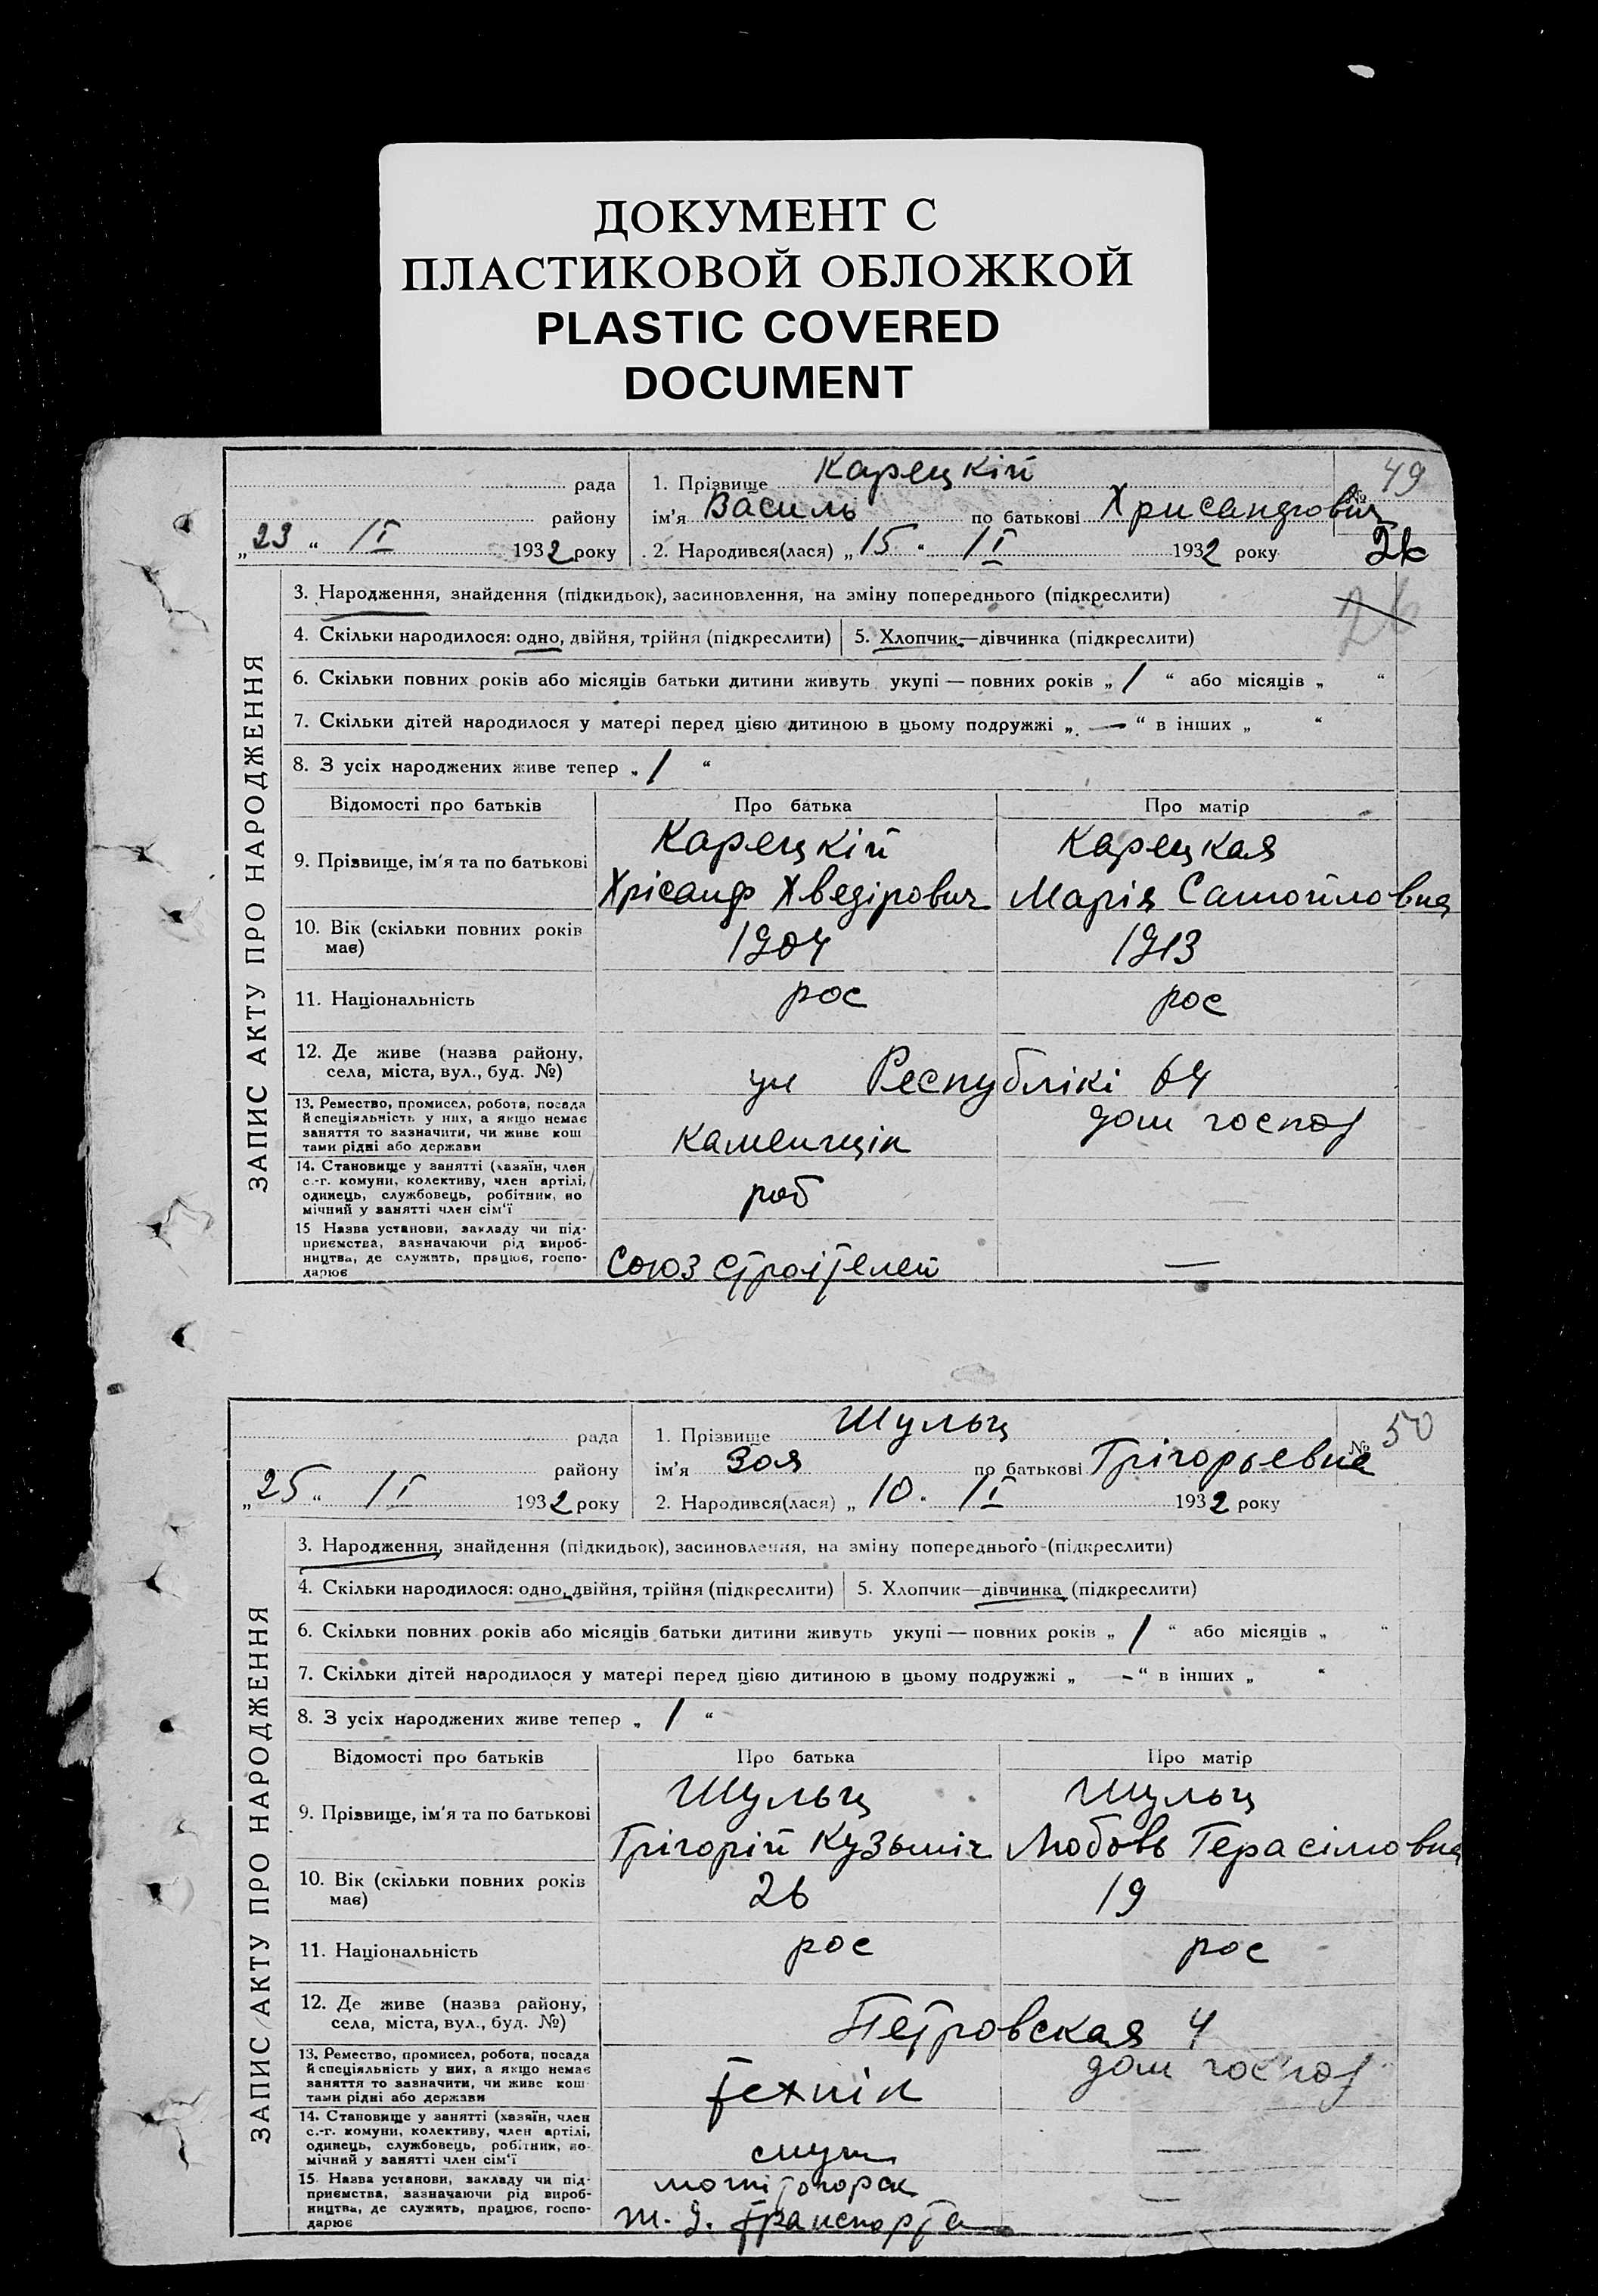 ДОКУМЕНТ С
ПЛАСТИКОВОЙ ОБЛОЖКОЙ
PLASTIC COVERED
DOCUMENT
рада
району
„23“ ІІ 1932 року
1. Прізвище Карецкій
№ 49
ім'я Василь по батькові Хрисандрович
2. Народився(лася) „15“ ІІ 1932 року
26
ЗАПИС АКТУ ПРО НАРОДЖЕННЯ
3. Народження, знайдення (підкидьок), засиновлення, на зміну попереднього (підкреслити)
4. Скільки народилося: одно, двійня, трійня (підкреслити) 5. Хлопчик—дівчинка (підкреслити)
6. Скільки повних років або місяців батьки дитини живуть укупі — повних років „ 1 “ або місяців „ “
7. Скільки дітей народилося у матері перед цією дитиною в цьому подружжі „ — “ в інших „ “
8. З усіх народжених живе тепер „ 1 “
Відомості про батьків Про батька Про матір
9. Прізвище, ім'я та по батькові
Карецкій Карецкая
Хрісанф Хведірович Марія Самойловна
10. Вік (скільки повних років має) 1904 1913
11. Національність рос рос
12. Де живе (назва району, села, міста, вул., буд. №)
ул Республікі 64
13. Ремество, промисел, робота, посада
й спеціяльність у них, а якщо немає
заняття то зазначити, чи живе кош
тами рідні або держави
каменщік дом господ
14. Становище у занятті (хазяїн, член
с.-г. комуни, колективу, член артілі,
одинець, службовець, робітник, по
мічний у занятті член сім'ї
роб —
15 Назва установи, закладу чи під-
приємства, вазначаючи рід вироб-
ництва, де служить, працює, госпо-
дарює
Союз строітелей —
рада
району
„25“ ІІ 1932 року
1. Прізвище Шульц
№ 50
ім'я Зоя по батькові Грігорьевна
2. Народився(лася) „ 10. ІІ 1932 року
ЗАПИС АКТУ ПРО НАРОДЖЕННЯ
3. Народження, знайдення (підкидьок), засиновлення, на зміну попереднього (підкреслити)
4. Скільки народилося: одно, двійня, трійня (підкреслити) 5. Хлопчик—дівчинка (підкреслити)
6. Скільки повних років або місяців батьки дитини живуть укупі — повних років „ 1 “ або місяців „ “
7. Скільки дітей народилося у матері перед цією дитиною в цьому подружжі „ - “ в інших „ “
8. З усіх народжених живе тепер „ 1 “
Відомості про батьків Про батька Про матір
9. Прізвище, ім'я та по батькові
Шульц Шульц
Грігорій Кузьміч Любовь Герасімовна
10. Вік (скільки повних років має) 26 19
11. Національність рос рос
12. Де живе (назва району, села, міста, вул., буд. №)
Петровская 4
13. Ремество, промисел, робота, посада
й спеціяльність у них, а якщо немає
заняття то зазначити, чи живе кош
тами рідні або держави
технік дом господ
14. Становище у занятті (хазяїн, член
с.-г. комуни, колективу, член артілі,
одинець, службовець, робітник, по-
мічний у занятті член сім'ї
служ —
15. Назва установи, закладу чи під-
приємства, зазначаючи рід вироб-
ництва, де служить, працює, госпо-
дарює
транспорта —